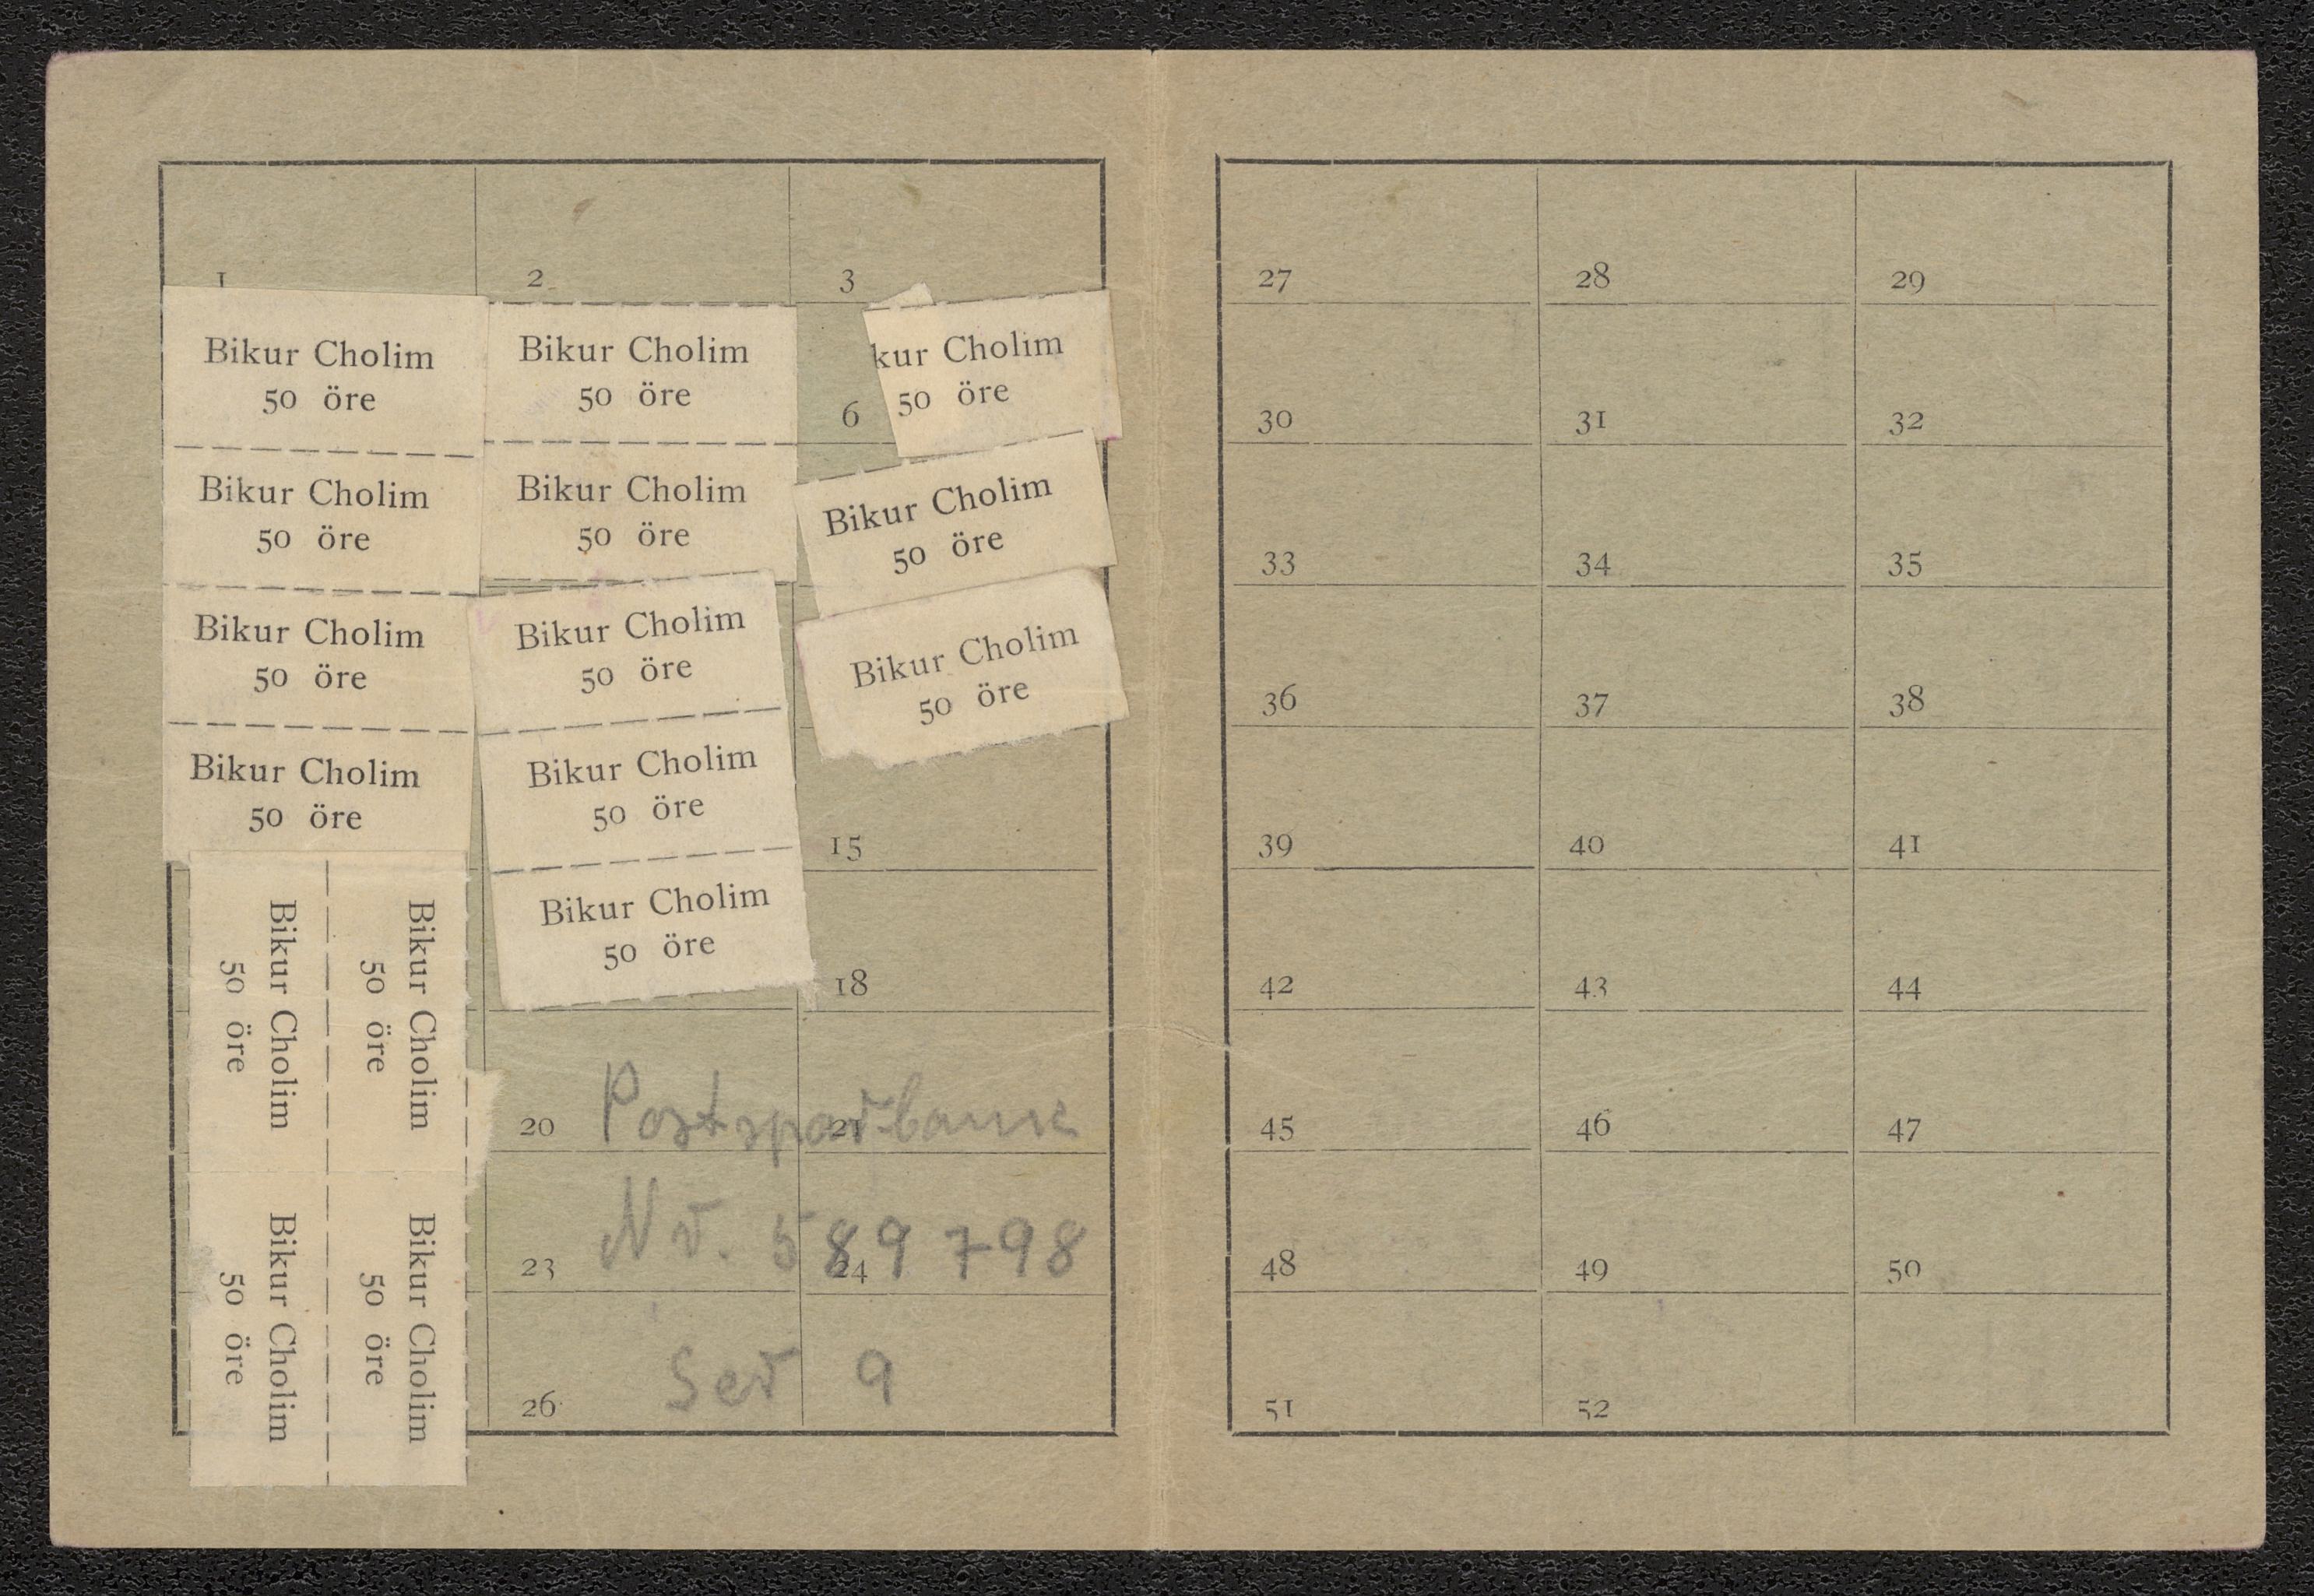 1 2 3
Bikur Cholim
50 öre
Bikur Cholim
50 öre
Bikur Cholim
50 öre
Bikur Cholim
50 öre
Bikur Cholim
50 öre
Bikur Cholim
50 öre
Bikur Cholim
50 öre
Bikur Cholim
50 öre
Bikur Cholim
50 öre
Bikur Cholim
50 öre
Bikur Cholim
50 öre
Bikur Cholim
50 öre
Bikur Cholim
50 öre
6
kur Cholim
50 öre
Bikur Cholim
50 öre
Bikur Cholim
50 öre
15
18
20 21
Postsparbank
23 24
Nr. 589798
26
Ser 9
27 28 29
30 31 32
33 34 35
36 37 38
39 40 41
42 43 44
45 46 47
48 49 50
51 52